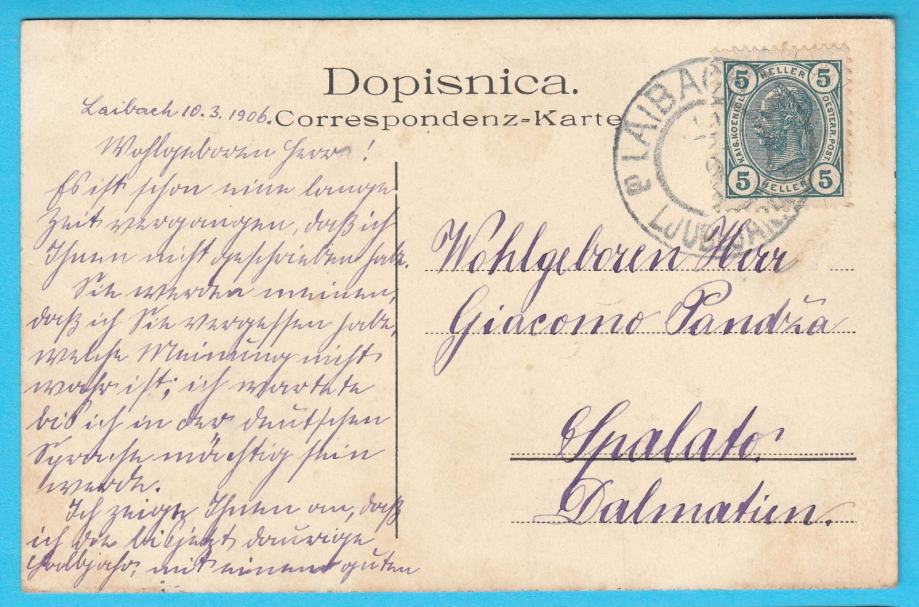 Dopisnica.
Correspondenz-Karte
Laibach 10.3.1906.
Wohlgeboren Herr!
Es ist schon eine lange
Zeit vergangen, daß ich
Ihnen nicht geschrieben habe.
Sie werden meinen,
daß ich Sie vergessen habe,
welche Meinung nicht
wahr ist; ich wartete
bis ich in der deutschen
Sprache mächtig sein
werde.
Ich zeige Ihnen an, daß
ich die bisjetzt daurige
Halbjahr, mit einem guten
LAIBACH
LJUBLJANA
5 HELLER 5
KAIS. KOENIGL. OESTERR. POST.
5 HELLER 5
Wohlgeboren Herr
Giacomo Pandža
Spalato.
Dalmatien.